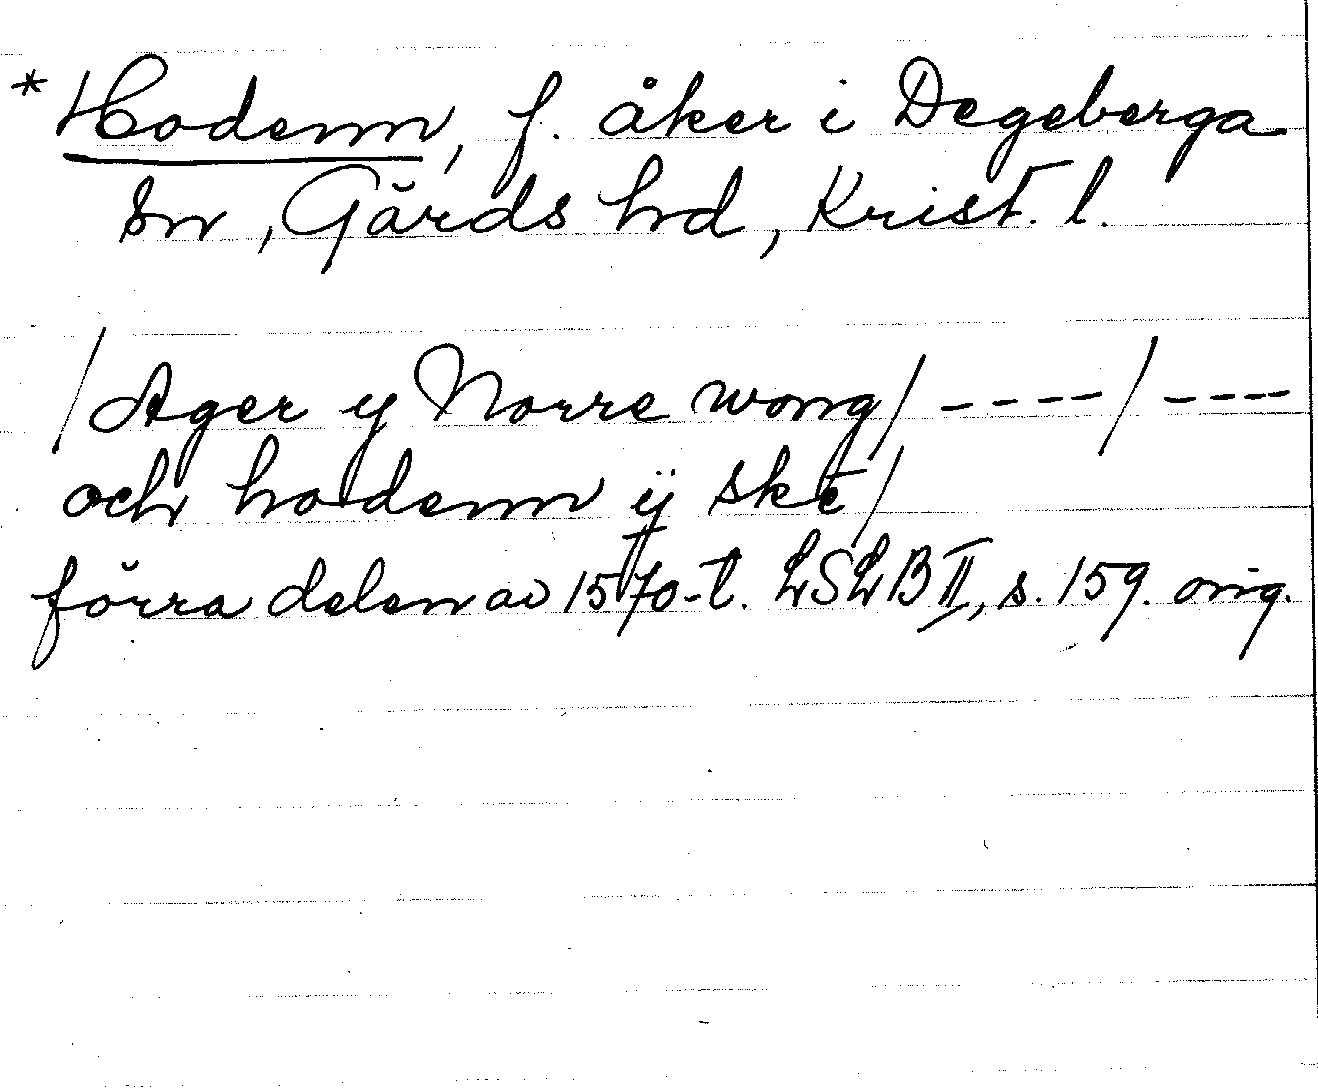 * Hodenn, f. åker i Degeberga
sn, Gärds hd, Krist. l.
/Ager y Norre wong/ ----/ ----
och hodenn ÿ skē/
förra delen av 1570-t. LSLB II, s. 159. orig.